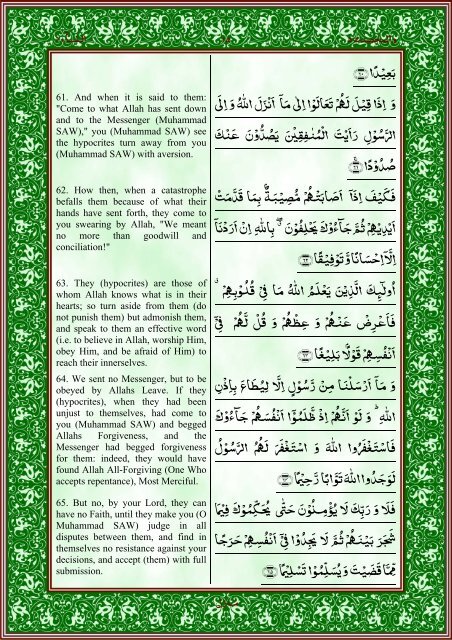 61. And when it is said to them:
"Come to what Allah has sent down
and to the Messenger (Muhammad
SAW)," you (Muhammad SAW) see
the hypocrites turn away from you
(Muhammad SAW) with aversion.
62. How then, when a catastrophe
befalls them because of what their
hands have sent forth, they come to
you swearing by Allah, "We meant
no more than goodwill and
conciliation!"
63. They (hypocrites) are those of
whom Allah knows what is in their
hearts; so turn aside from them (do
not punish them) but admonish them,
and speak to them an effective word
(i.e. to believe in Allah, worship Him,
obey Him, and be afraid of Him) to
reach their innerselves.
64. We sent no Messenger, but to be
obeyed by Allahs Leave. If they
(hypocrites), when they had been
unjust to themselves, had come to
you (Muhammad SAW) and begged
Allahs Forgiveness, and the
Messenger had begged forgiveness
for them: indeed, they would have
found Allah All-Forgiving (One Who
accepts repentance), Most Merciful.
65. But no, by your Lord, they can
have no Faith, until they make you (O
Muhammad SAW) judge in all
disputes between them, and find in
themselves no resistance against your
decisions, and accept (them) with full
submission.
بَعِيْدًا ﴿۶۰﴾
وَ اِذَا قِيْلَ لَهُمْ تَعَالَوْا اِلٰى مَاۤ اَنْزَلَ اللّٰهُ وَ اِلَى
الرَّسُوْلِ رَاَيْتَ الْمُنٰفِقِيْنَ يَصُدُّوْنَ عَنْكَ
صُدُوْدًا ﴿۶۱﴾
فَكَيْفَ اِذَاۤ اَصَابَتْهُمْ مُّصِيْبَةٌۢ بِمَا قَدَّمَتْ
اَيْدِيْهِمْ ثُمَّ جَآءُوْكَ يَحْلِفُوْنَ ۖ بِاللّٰهِ اِنْ اَرَدْنَاۤ
اِلَّاۤ اِحْسَانًا وَّ تَوْفِيْقًا ﴿۶۲﴾
اُولٰٓىِٕكَ الَّذِيْنَ يَعْلَمُ اللّٰهُ مَا فِيْ قُلُوْبِهِمْ ۗ
فَاَعْرِضْ عَنْهُمْ وَ عِظْهُمْ وَ قُلْ لَّهُمْ فِيْۤ
اَنْفُسِهِمْ قَوْلًۢا بَلِيْغًا ﴿۶۳﴾
وَ مَاۤ اَرْسَلْنَا مِنْ رَّسُوْلٍ اِلَّا لِيُطَاعَ بِاِذْنِ
اللّٰهِ ؕ وَ لَوْ اَنَّهُمْ اِذْ ظَّلَمُوْۤا اَنْفُسَهُمْ جَآءُوْكَ
فَاسْتَغْفَرُوا اللّٰهَ وَ اسْتَغْفَرَ لَهُمُ الرَّسُوْلُ
لَوَجَدُوا اللّٰهَ تَوَّابًا رَّحِيْمًا ﴿۶۴﴾
فَلَا وَ رَبِّكَ لَا يُؤْمِنُوْنَ حَتّٰى يُحَكِّمُوْكَ فِيْمَا
شَجَرَ بَيْنَهُمْ ثُمَّ لَا يَجِدُوْا فِيْۤ اَنْفُسِهِمْ حَرَجًا
مِّمَّا قَضَيْتَ وَ يُسَلِّمُوْا تَسْلِيْمًا ﴿۶۵﴾